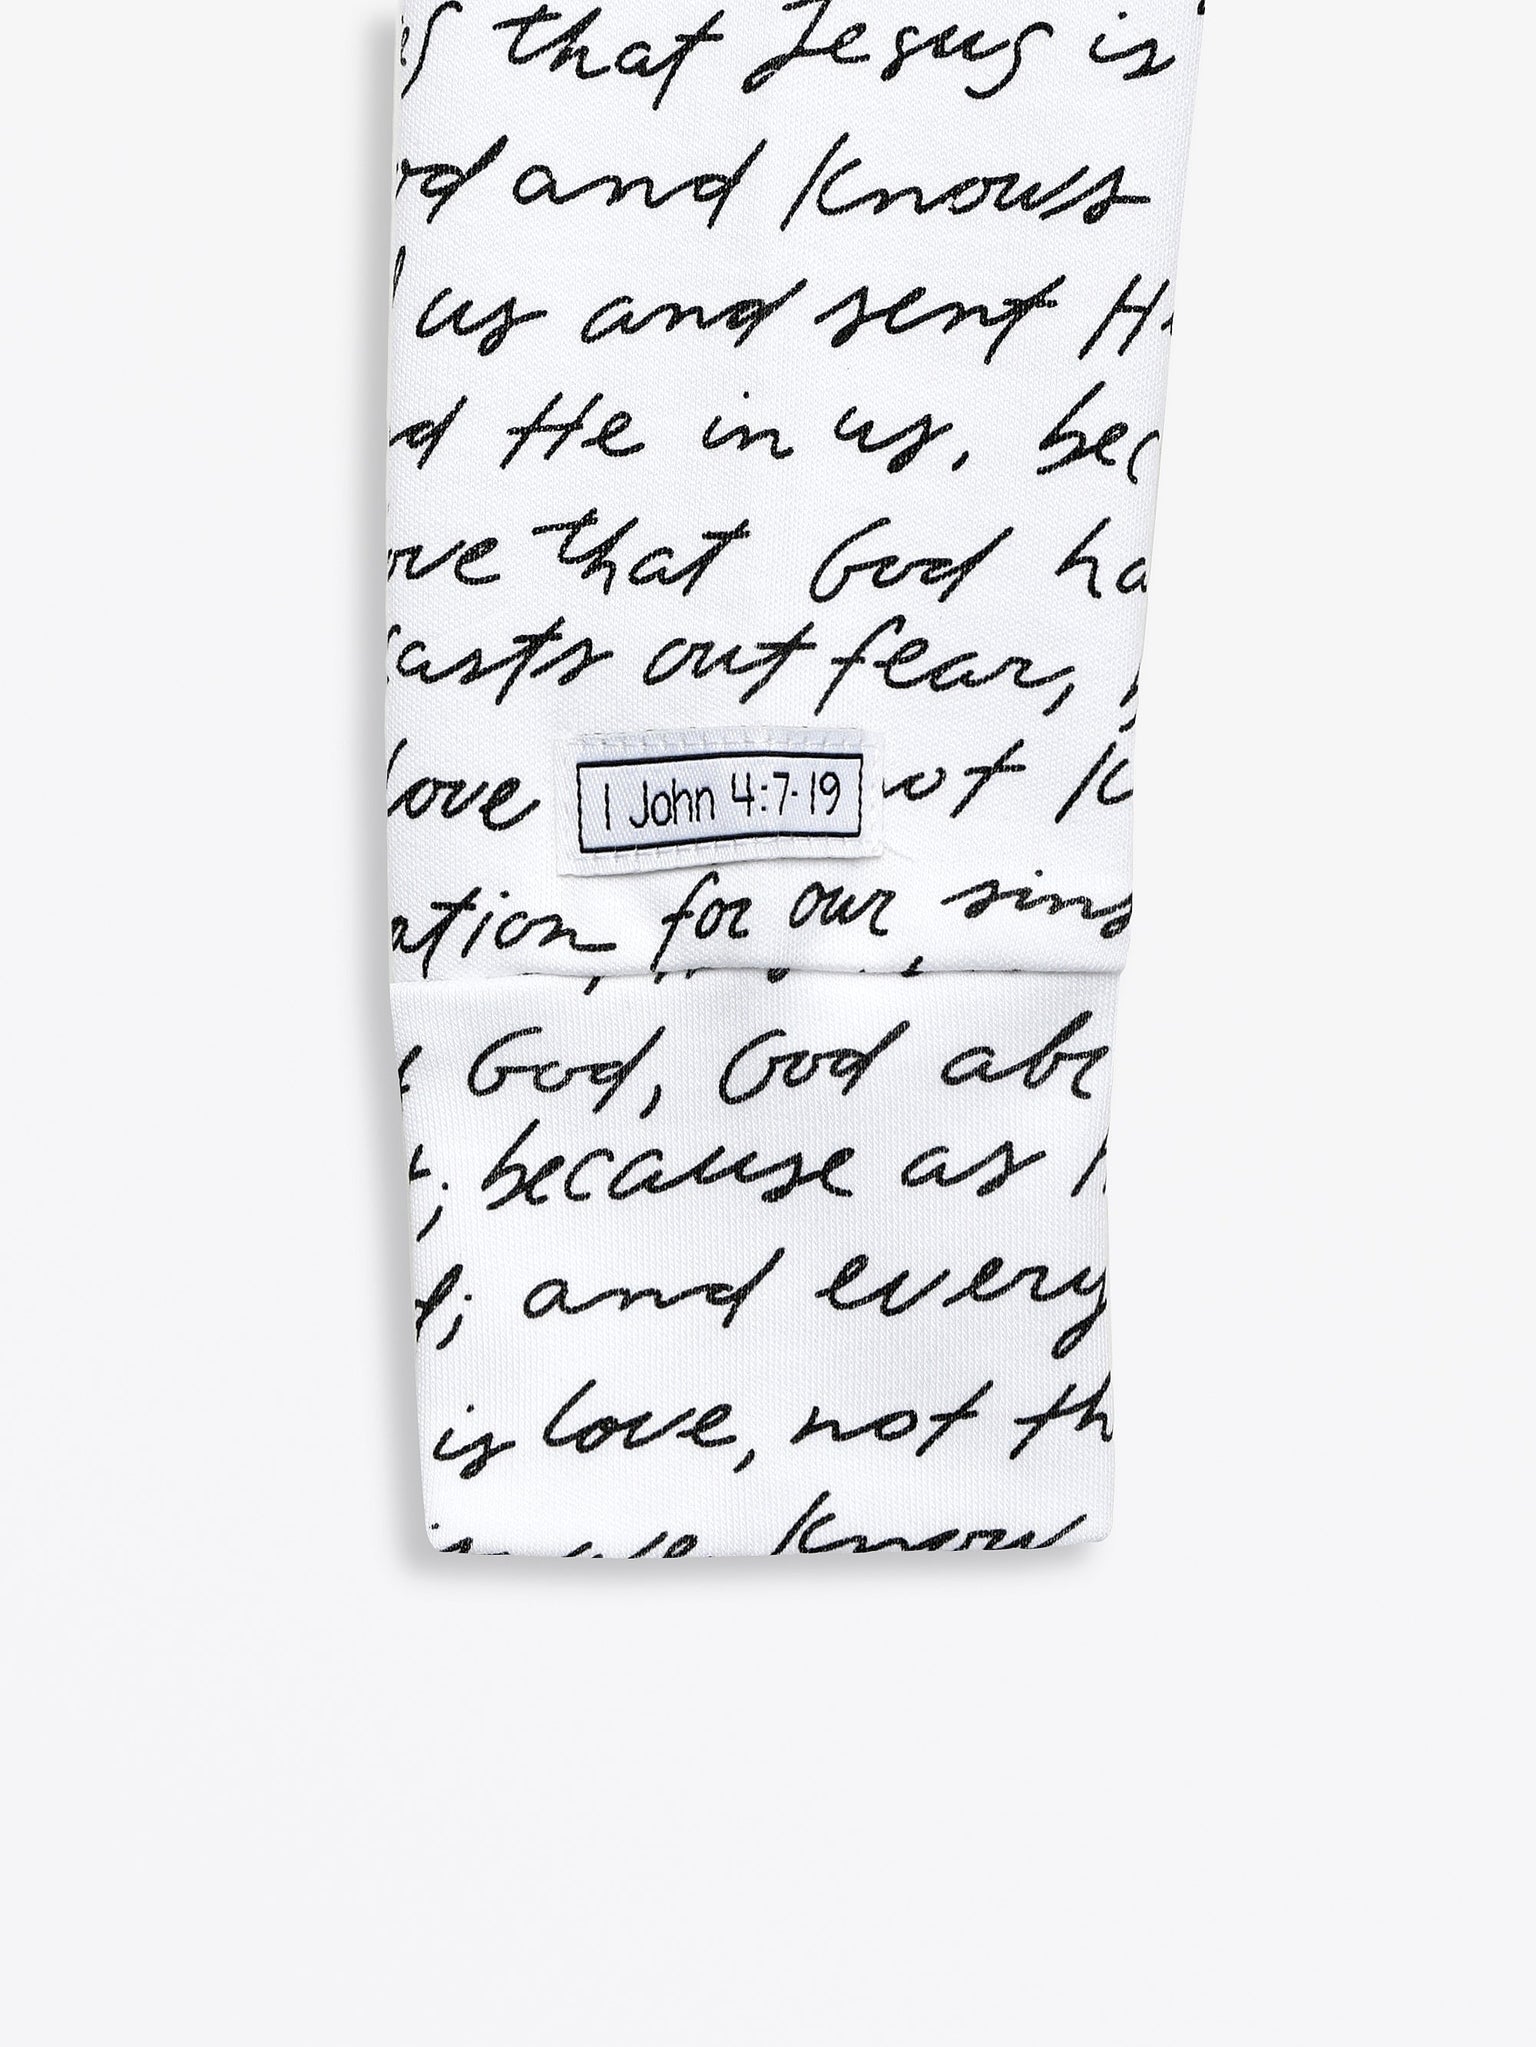 that Jesus is
and knows
us and sent
He in us. bec
ve that God ha
asts out fear,
love
1 John 4:7-19
ot K
ation for our sins
God, God ab
; because as
; and every
is love, not th
we know